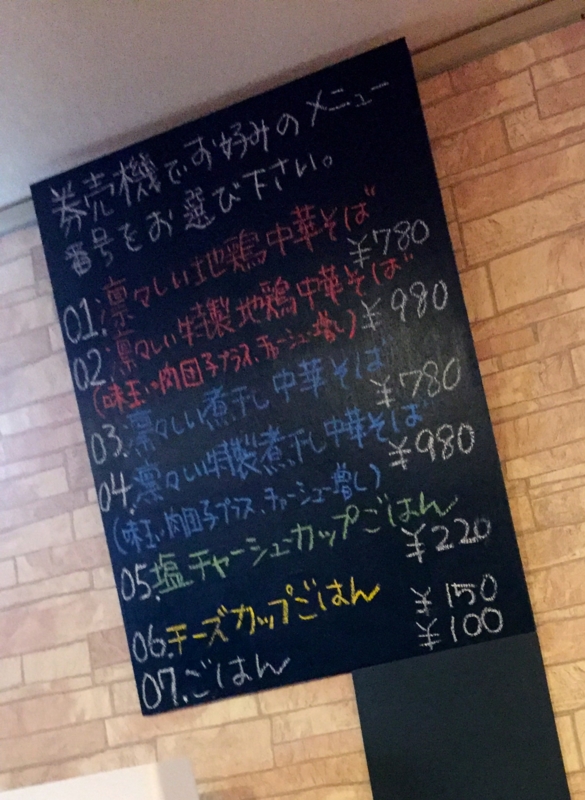 券売機でお好みのメニュー
番号をお選び下さい。
01.凛々しい地鶏中華そば ¥780
02.凛々しい特製地鶏中華そば ¥980
(味玉、肉団子プラス、チャーシュー増し)
03.凛々しい煮干し中華そば ¥780
04.凛々しい特製煮干し中華そば ¥980
(味玉、肉団子プラス、チャーシュー増し)
05.塩チャーシューカップごはん ¥220
06.チーズカップごはん ¥150
07.ごはん ¥100